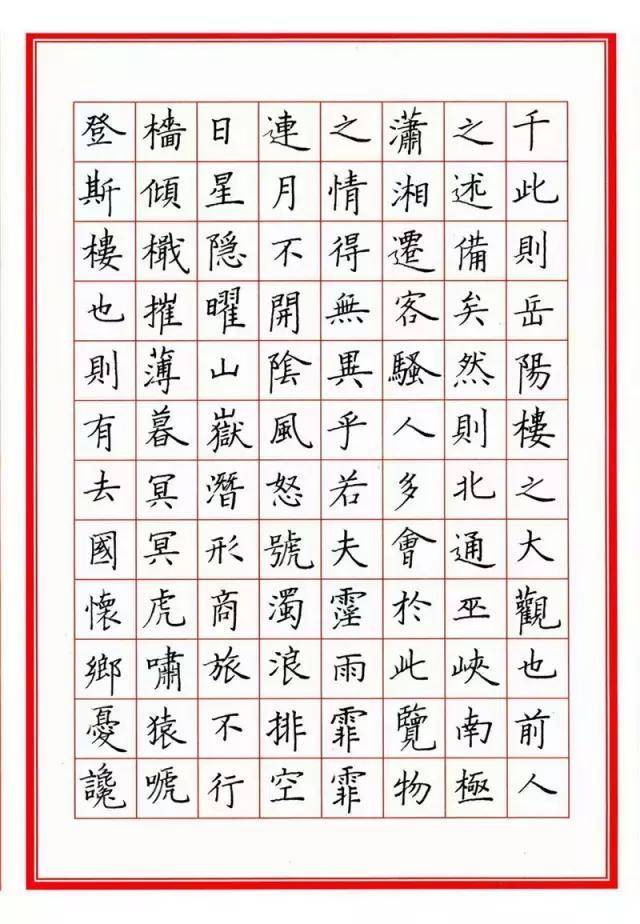 千此則岳陽樓之大觀也前人
之述備矣然則北通巫峽南極
瀟湘遷客騷人多會於此覽物
之情得無異乎若夫霪雨霏霏
連月不開陰風怒號濁浪排空
日星隱曜山嶽潛形商旅不行
檣傾檝摧薄暮冥冥虎嘯猿嗁
登斯樓也則有去國懷鄉憂讒